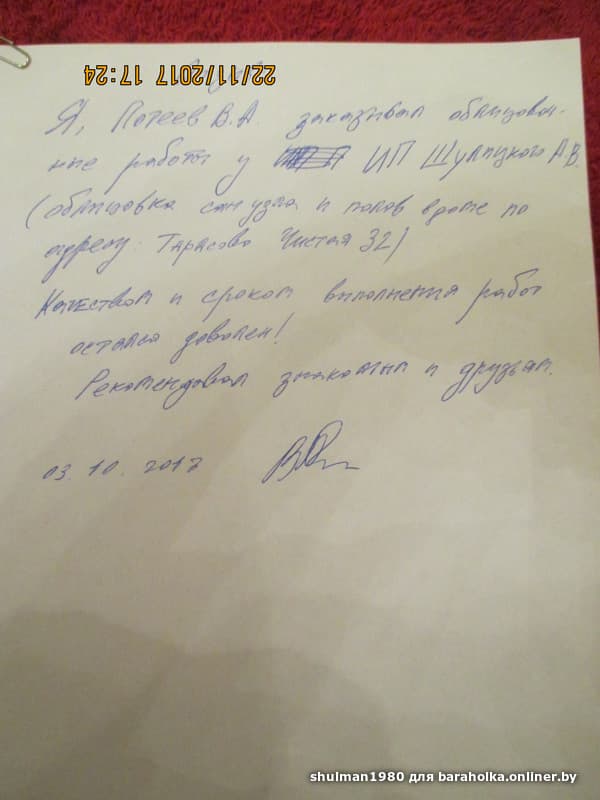 22/11/2017 17:24
Я, Потеев В.А. заказывал облицовоч-
ные работы у ИП Шулицкого А.В.
(облицовка сан узла и полов в доме по
адресу: Тарасово Чистая 32)
Качеством и сроком выполнения работ
остался доволен!
Рекомендовал знакомым и друзьям.
03.10.2017
shulman1980 для baraholka.onliner.by